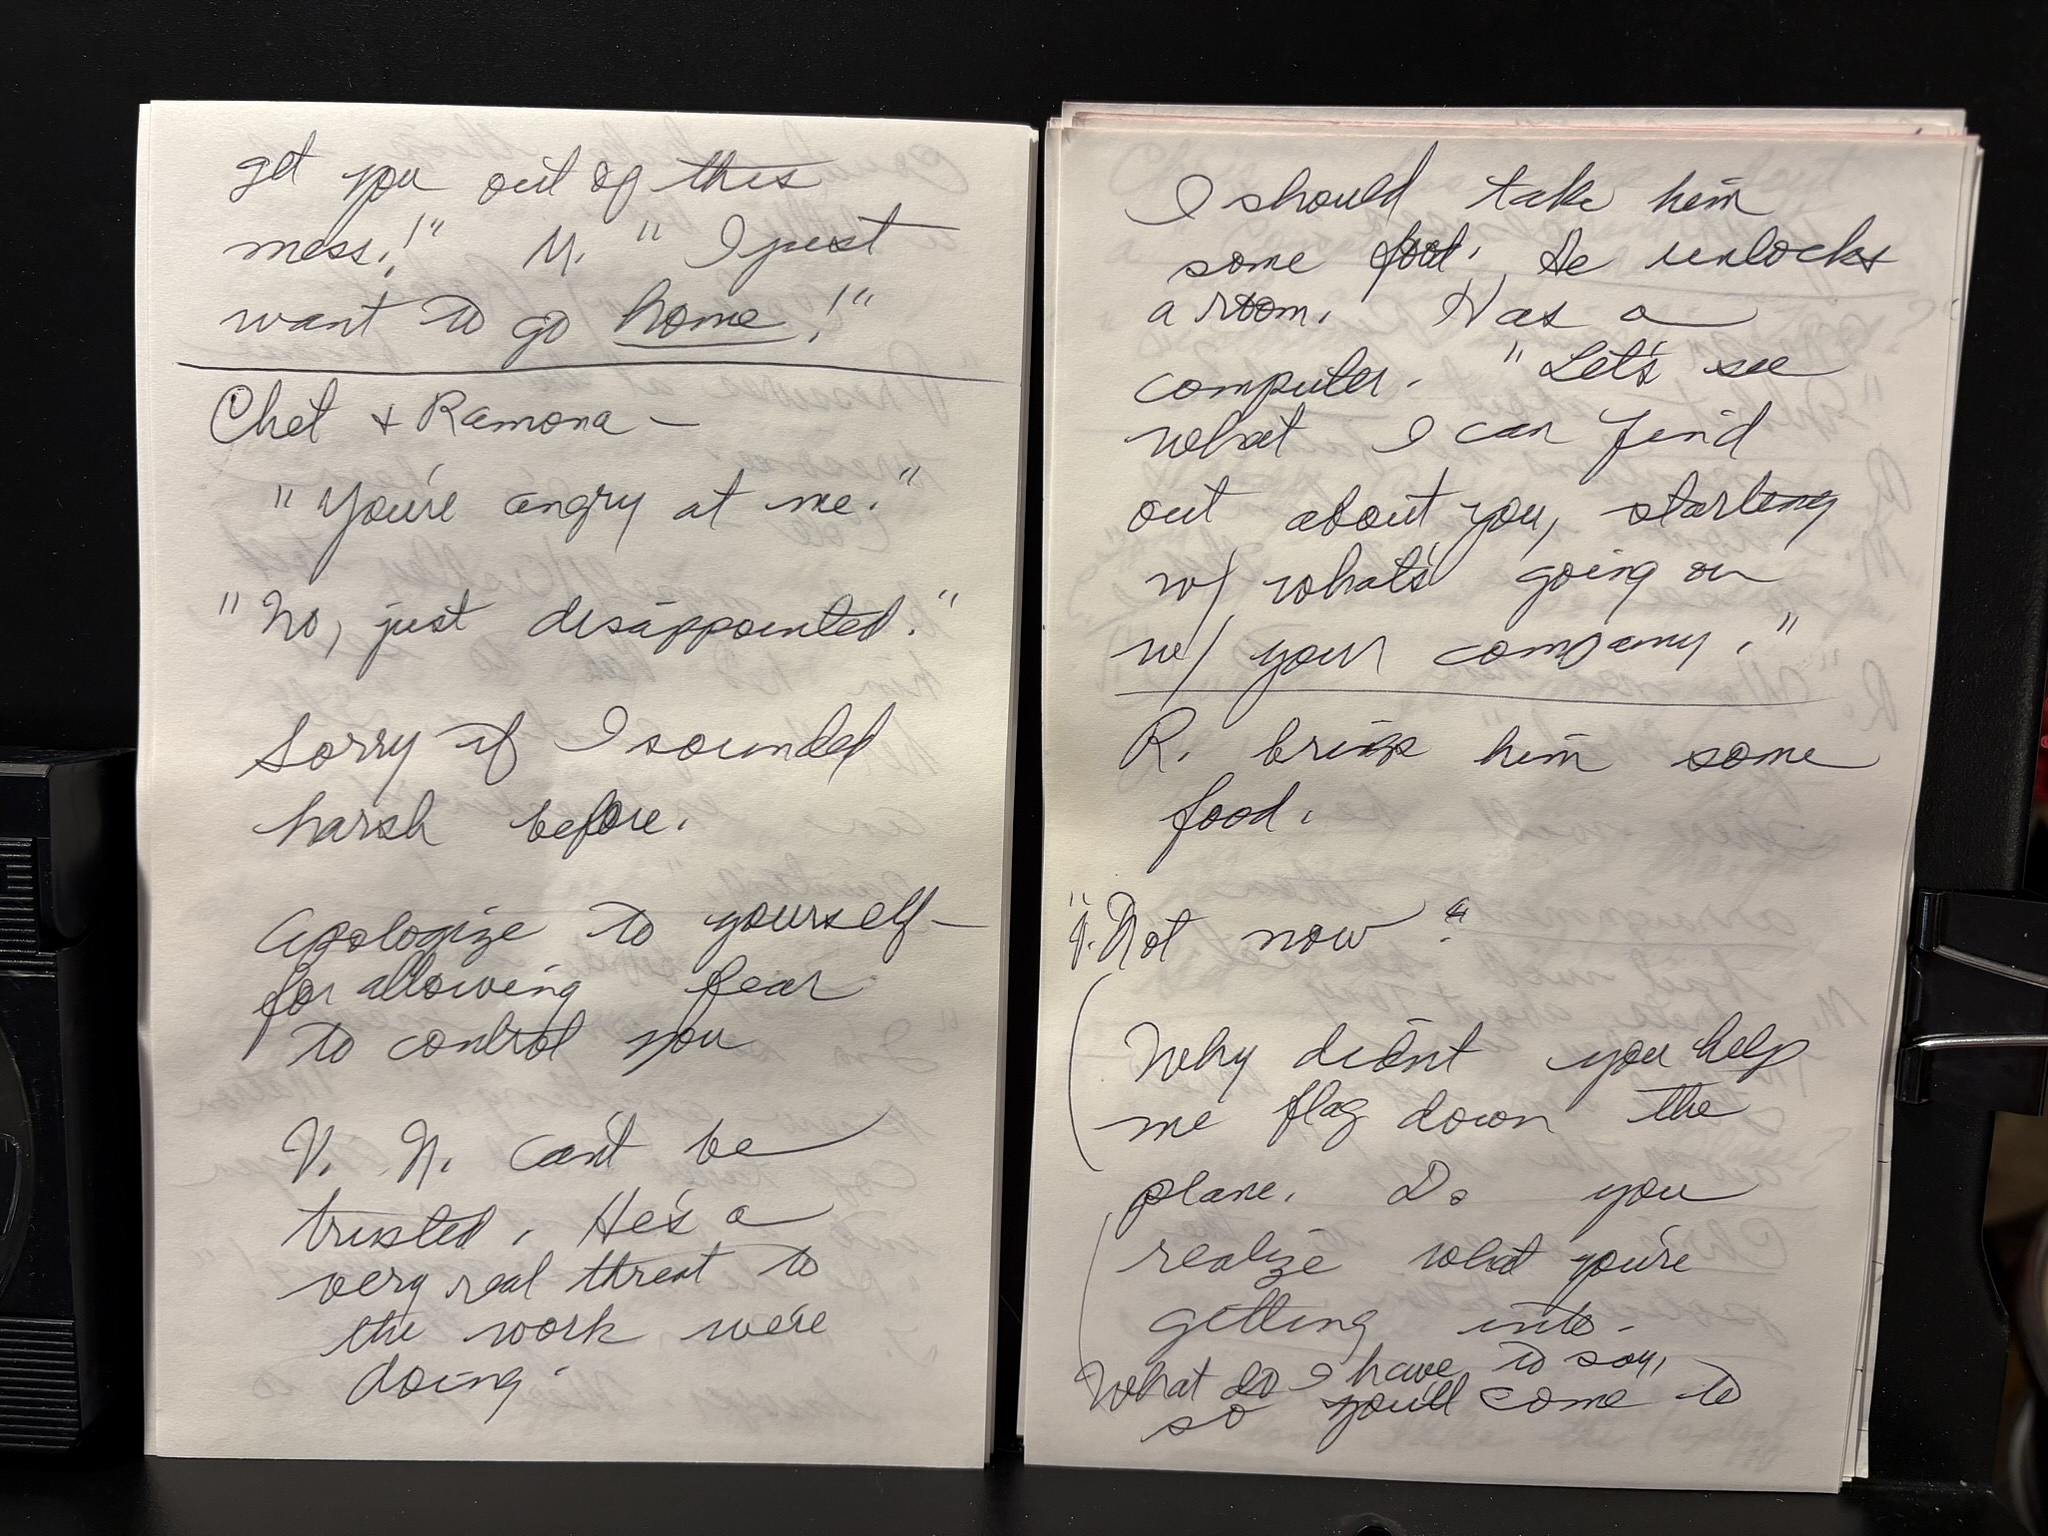 get you out of this
mess!" M. "I just
want to go home!"
Chet + Ramona —
"You're angry at me."
"No, just disappointed."
Sorry if I sounded
harsh before.
Apologize to yourself —
for allowing fear
to control you
V. N. can't be
trusted. He's a
very real threat to
the work we're
doing.
I should take him
some food. He unlocks
a room. Has a
computer. "Let's see
what I can find
out about you, starting
w/ what's going on
w/ your company."
R. brings him some
food.
Not now"
Why didn't you help
me flag down the
plane. Do you
realize what you're
getting into.
What do I have to say,
so you'll come to